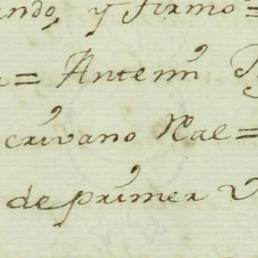 ando, y firmo =
= Antemi
crivano Real =
de primer